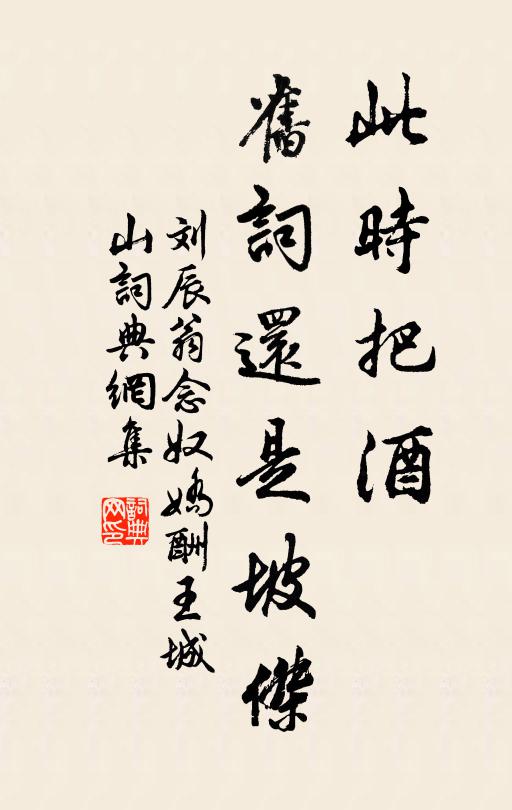 此時把酒
舊詞還是坡傑
刘辰翁念奴嬌酬王城
山詞典網集
詞典
网印